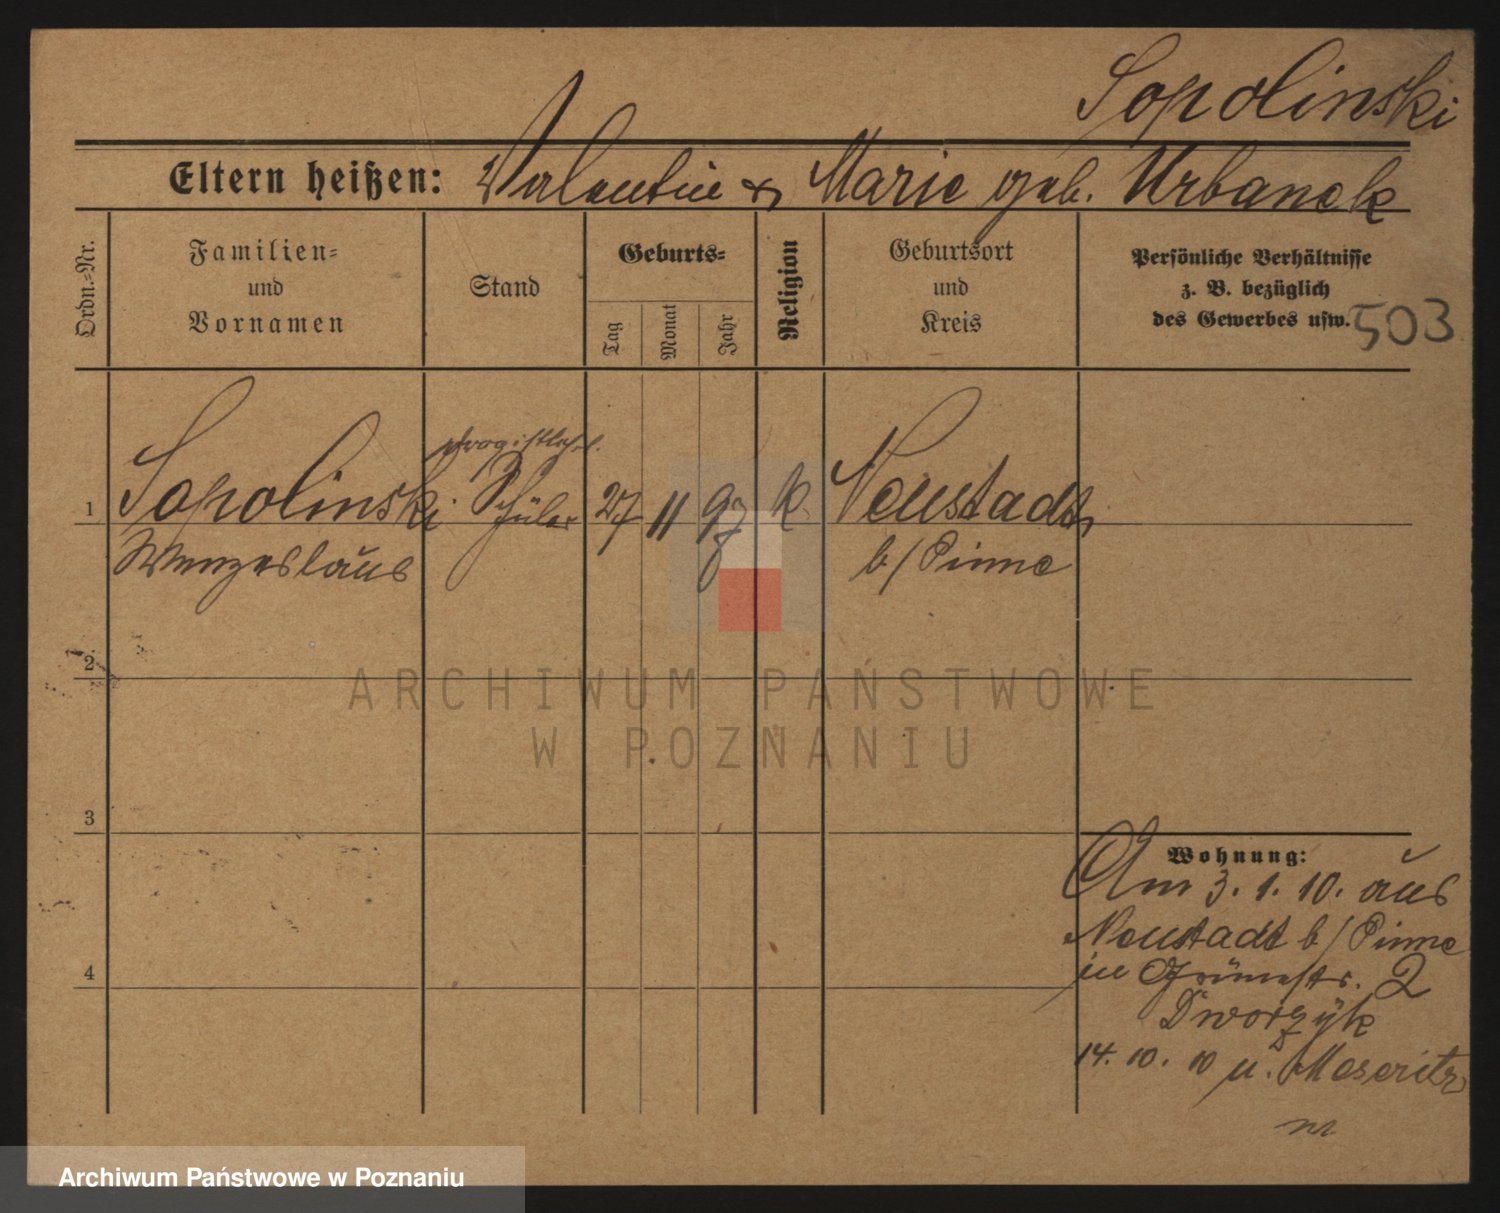 Sopolinski
Eltern heißen: Valentin & Marie geb. Urbanek
Ordn.=Nr.
Familien=
und
Vornamen
Stand
Geburts=
Tag
Monat
Jahr
Religion
Geburtsort
und
Kreis
Persönliche Verhältnisse
z. B. bezüglich
des Gewerbes usw.
503
1
Sopolinski
Wenzeslaus
Drogistlehrl.
Schüler
27 11 97 k.
Neustadt
b/Pinne
2
3
4
Wohnung:
Am 3.1.10. aus
Neustadt b/Pinne
in Grünestr. 2
Dworzyk
14.10.10 n. Meseritz
ARCHIWUM PAŃSTWOWE
W POZNANIU
Archiwum Państwowe w Poznaniu